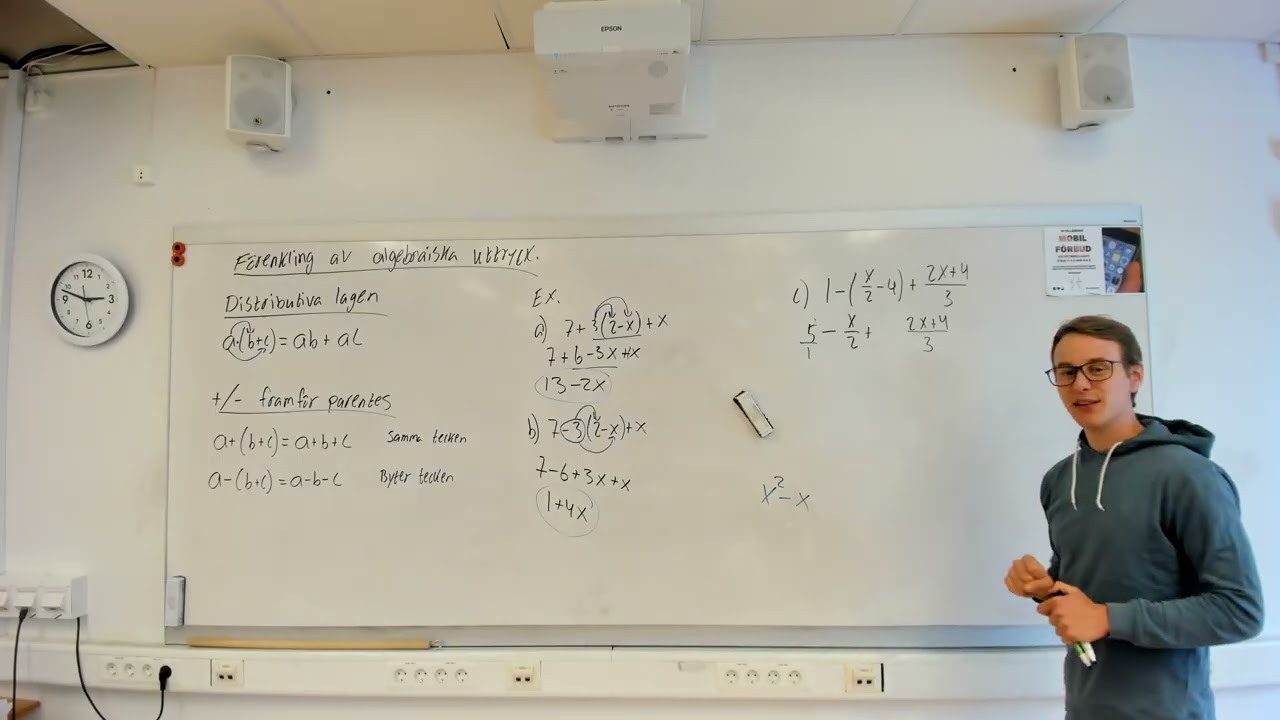 EPSON
Förenkling av algebraiska uttryck.
Distributiva lagen
a·(b+c)=ab+ac
+/- framför parentes
a+(b+c)=a+b+c Samma tecken
a-(b+c)=a-b-c Byter tecken
EX.
a) 7+3(2-x)+x
7+6-3x+x
13-2x
b) 7-3(2-x)+x
7-6+3x+x
1+4x
c) 1-(x/2-4)+(2x+4)/3
5/1-x/2+ (2x+4)/3
x²-x
MOBIL
FÖRBUD
12
3
6
9